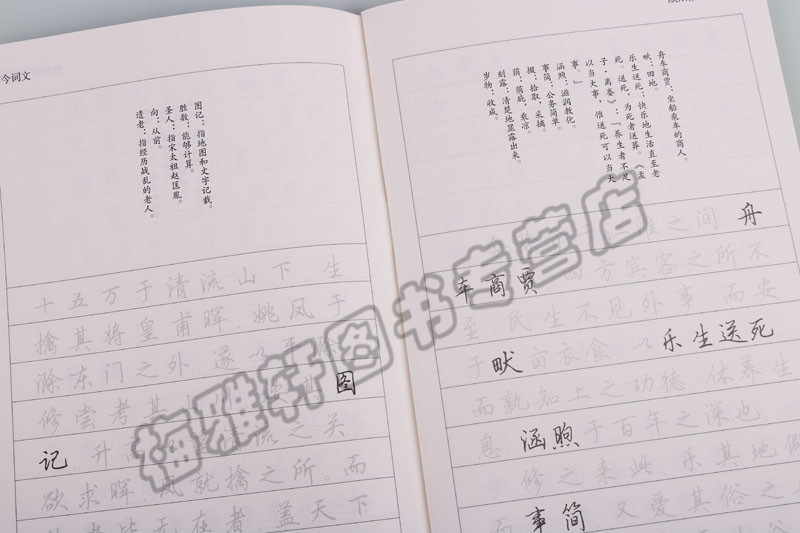 今词文
图记：指地图和文字记载。
胜数：能够计算。
圣人：指宋太祖赵匡胤。
向：从前。
遗老：指经历战乱的老人。
十五万于清流山下，生
擒其将皇甫晖、姚凤于
滁东门之外，遂以
修尝考其 图
记，升 流之关，
欲求晖、 就擒之所。而
皆无在者，盖天下
舟车商贾：坐船乘车的商人。
畎：田地。
乐生送死：快乐地生活直至老
死。送死，为死者送葬。《孟
子·离娄》：“养生者不足
以当大事，惟送死可以当大
事。”
涵煦：滋润教化。
事简：公务简单。
掇：拾取，采摘。
荫：荫庇，乘凉。
刻露：清楚地显露出来。
岁物：收成。
之间，舟
车商贾 方宾客之所不
至。民生不见外事，而安
于畎亩衣食，以乐生送死，
而孰知上之功德，休养生
息，涵煦于百年之深也。
修之来此，乐其地僻
而事简，又爱其俗之
梅雅轩图书专营店